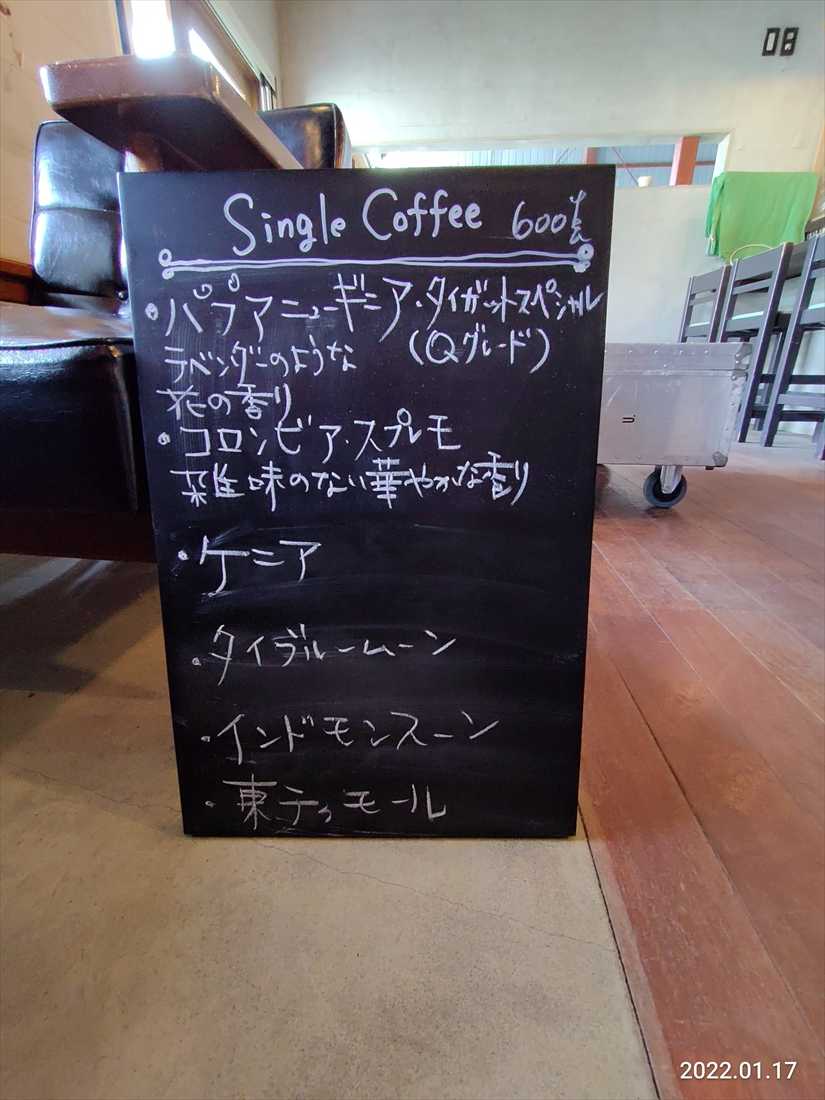 08
Single Coffee 600円
・パプアニューギニア・タイガットスペシャル
(Qグレード)
ラベンダーのような
花の香り
・コロンビア・スプレモ
雑味のない華やかな香り
・ケニア
・タイブルームーン
・インドモンスーン
・東ティモール
2022.01.17